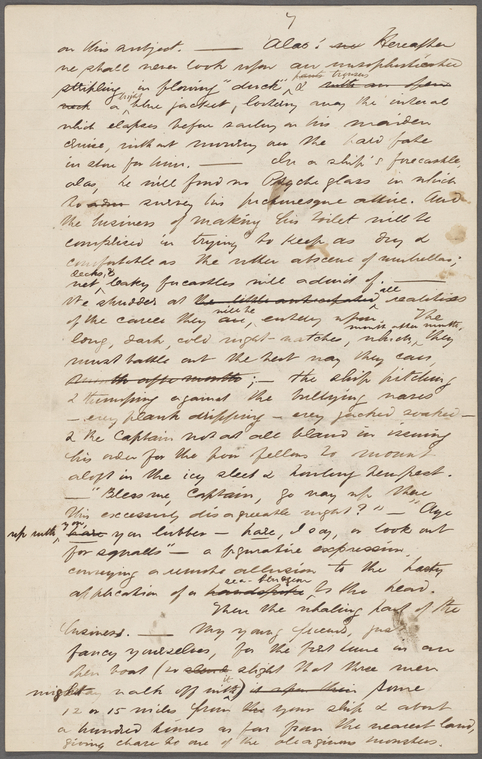 7
on this subject. — Alas! no Hereafter
we shall never look upon an unsophisticated
stripling in flowing "duck" pants trousers & with an open
neck a bright blue jacket, loitering away the interval
which elapses before sailing on his maiden
cruise, without mourning over the hard fate
in store for him. — In a ship's forecastle,
alas, he will find no Psyche glass in which
to adm survey his picturesque attire. And
the business of making his toilet will be
comprised in trying to keep as dry &
comfortable as the utter absence of umbrellas,
wet decks, & leaky forcastles will admit of. —
We shudder at the little anticipated all realities
of the career they are will be entering upon. The
long, dark, cold night-watches, which, month after month, they
must battle out the best way they can,
month after month; — the ship pitching
& thumping against the bullying waves
— every plank dripping — every jacket soaked —
& the Captain not at all bland in issuing
his order for the poor fellows to mount
aloft in the icy sleet & howling tempest.
— "Bless me, Captain, go way up there
this excessively disagreeable night?" — "Aye
up with you, haze you lubber — haze, I say, or look out
for squalls" — a figurative expression,
conveying a remote allusion to the hasty
application of a handspike sea-bludgeon to the head.
Then the whaling part of the
business. — My young friends, just
fancy yourselves, for the first time in an
open boat (so slight that three men
might walk off with it) some
12 or 15 miles from the your ship & about
a hundred times as far from the nearest land,
giving chase to one of the oleaginous monsters.